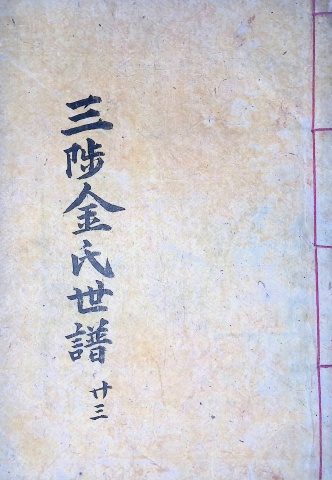 三陟金氏世譜 廿三